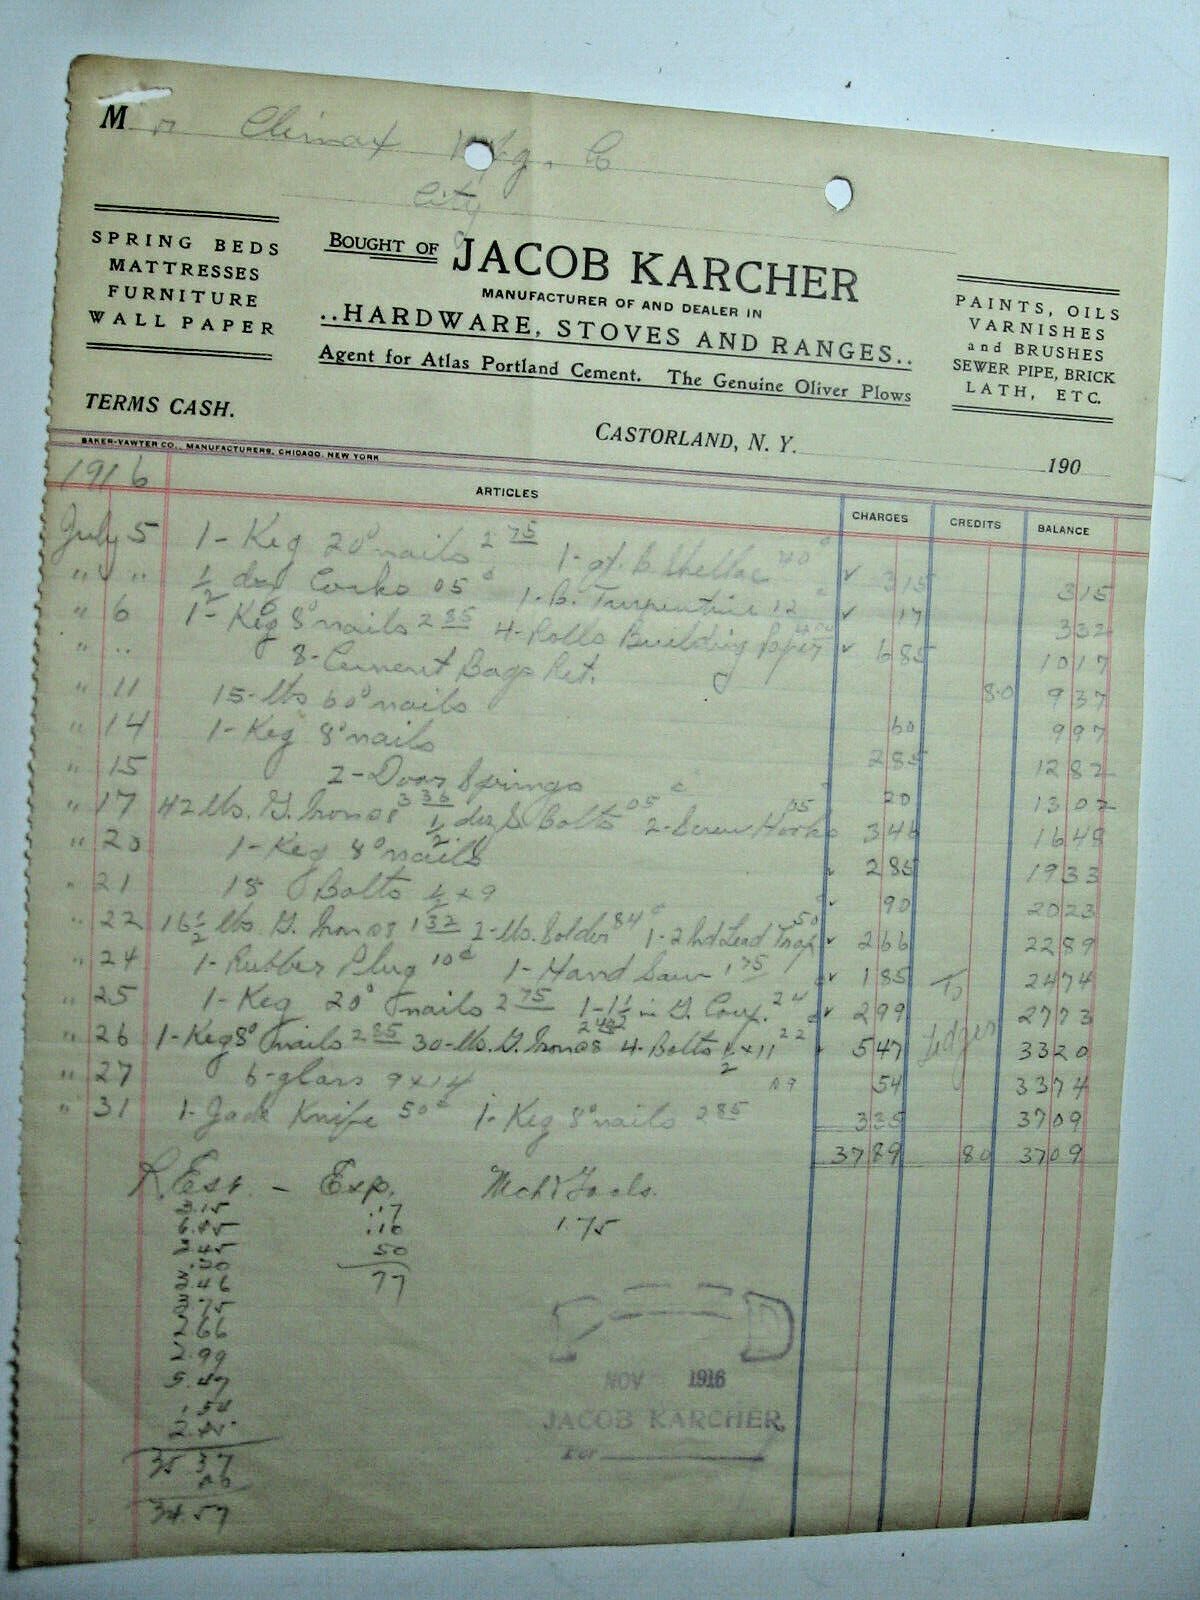 M r Climax Mfg. Co
City
SPRING BEDS
MATTRESSES
FURNITURE
WALL PAPER
BOUGHT OF JACOB KARCHER
MANUFACTURER OF AND DEALER IN
..HARDWARE, STOVES AND RANGES..
Agent for Atlas Portland Cement. The Genuine Oliver Plows
PAINTS, OILS
VARNISHES
and BRUSHES
SEWER PIPE, BRICK
LATH, ETC.
TERMS CASH.
CASTORLAND, N. Y. 190
BAKER-VAWTER CO., MANUFACTURERS, CHICAGO, NEW YORK
1916 ARTICLES CHARGES CREDITS BALANCE
July 5 1-Keg 20d nails 2 75 1-pt. B. Shellac 40c ✓ 315 315
" " ½ doz Corks 05c 1-B. Turpentine 12c ✓ 17 332
" 6 1-Keg 8d nails 2 85 4-Rolls Building Paper 4 00 ✓ 685 1017
" " 8-Cement Bags Ret. 80 937
" 11 15-lbs 60d nails 60 997
" 14 1-Keg 8d nails 285 1282
" 15 2-Door Springs 20 1302
" 17 42 lbs. G. Iron 08 3 36 ½ doz S Bolts 05c 2-Screw Hooks 05c 346 1648
" 20 1-Keg 8d nails 285 1933
" 21 18 Bolts ½ x 9 90 2023
" 22 16½ lbs. G. Iron 08 1 32 2-lbs. Solder 84c 1-2nd Lead Trap 50 ✓ 266 2289
" 24 1-Rubber Plug 10c 1-Hand Saw 1 75 ✓ 185 To 2474
" 25 1-Keg 20d nails 2 75 1-1½ in G. Coup. 24c ✓ 299 2773
" 26 1-Keg 8d nails 2 85 30-lbs. G. Iron 08 2 40 4-Bolts ½ x 11 22 547 Ledger 3320
" 27 6-glass 9 x 14 09 54 3374
" 31 1-Jack Knife 50c 1-Keg 8d nails 2 85 335 3709
3789 80 3709
R. Est. - Exp. Mch & Tools.
3.15 .17 1.75
6.85 .10
3.45 50
.20 77
3.46
3.75
2.66
2.99
5.47
.54
2.85
35.37
80
34.57
NOV 1916
JACOB KARCHER
Per